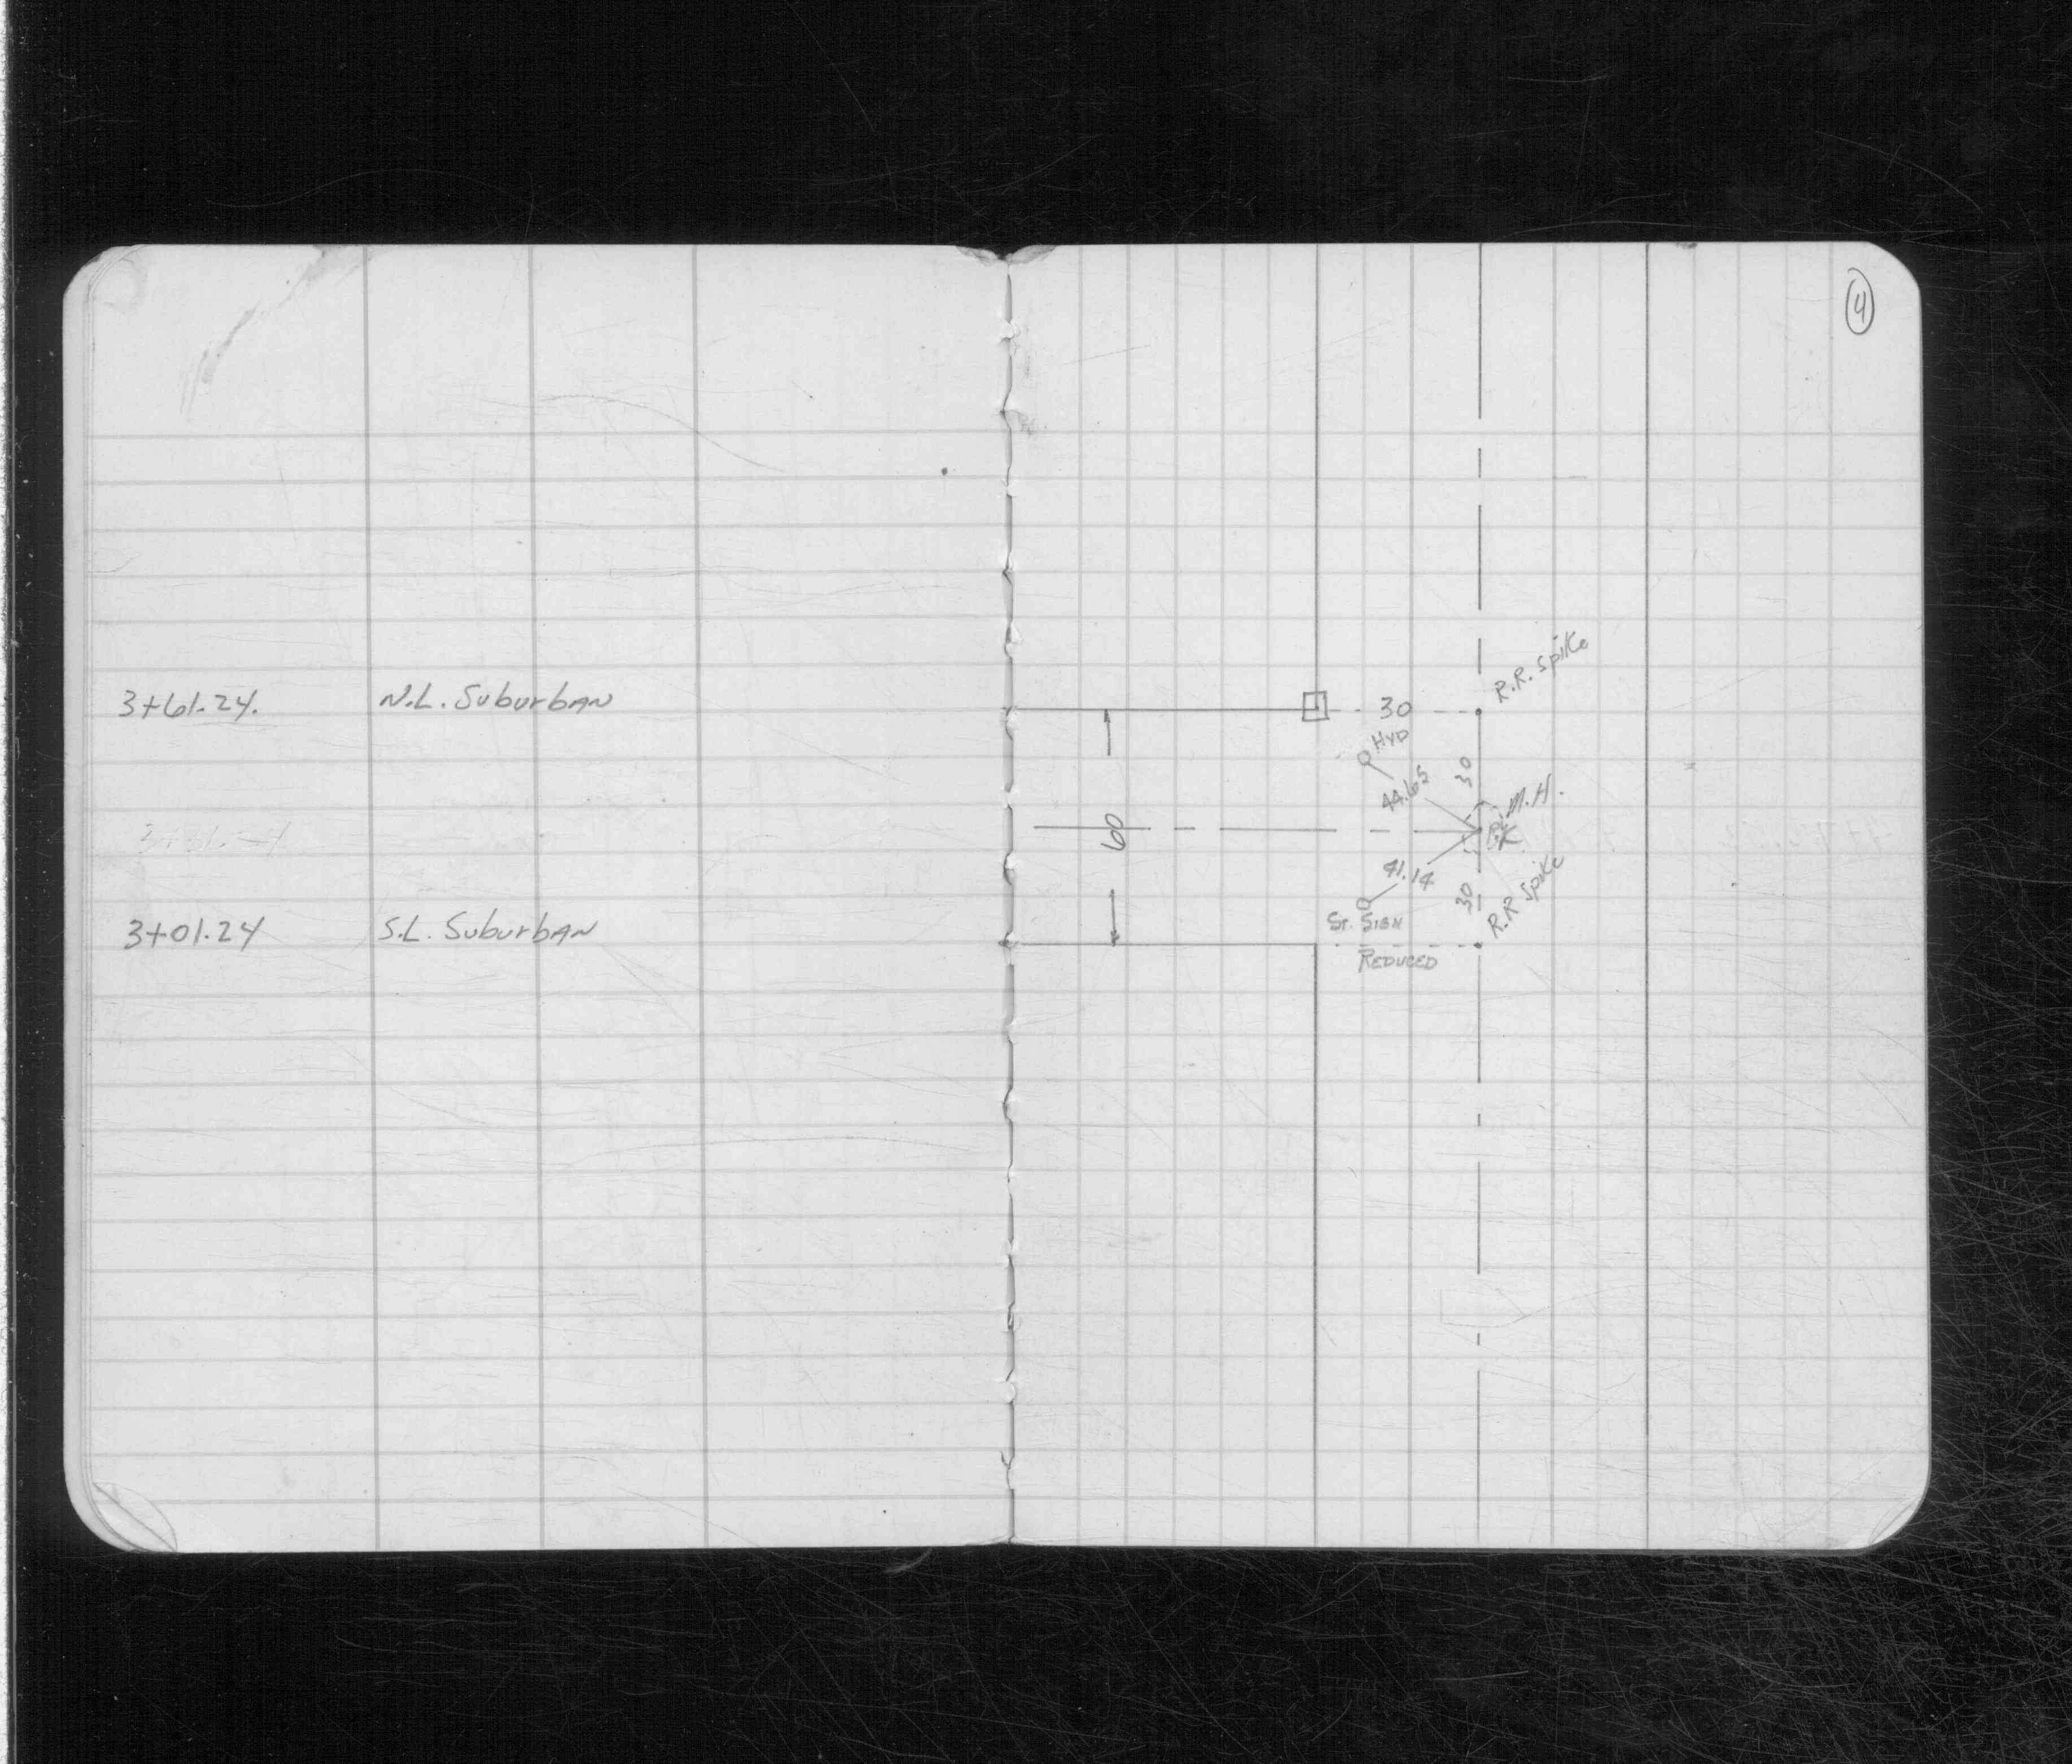 4
3+61.24.
N.L. Suburban
3+01.24
S.L. Suburban
R.R. Spike
30
HYD
44.65
30
M.H.
60
PK
41.14
30
R.R Spike
ST. SIGN
REDUCED